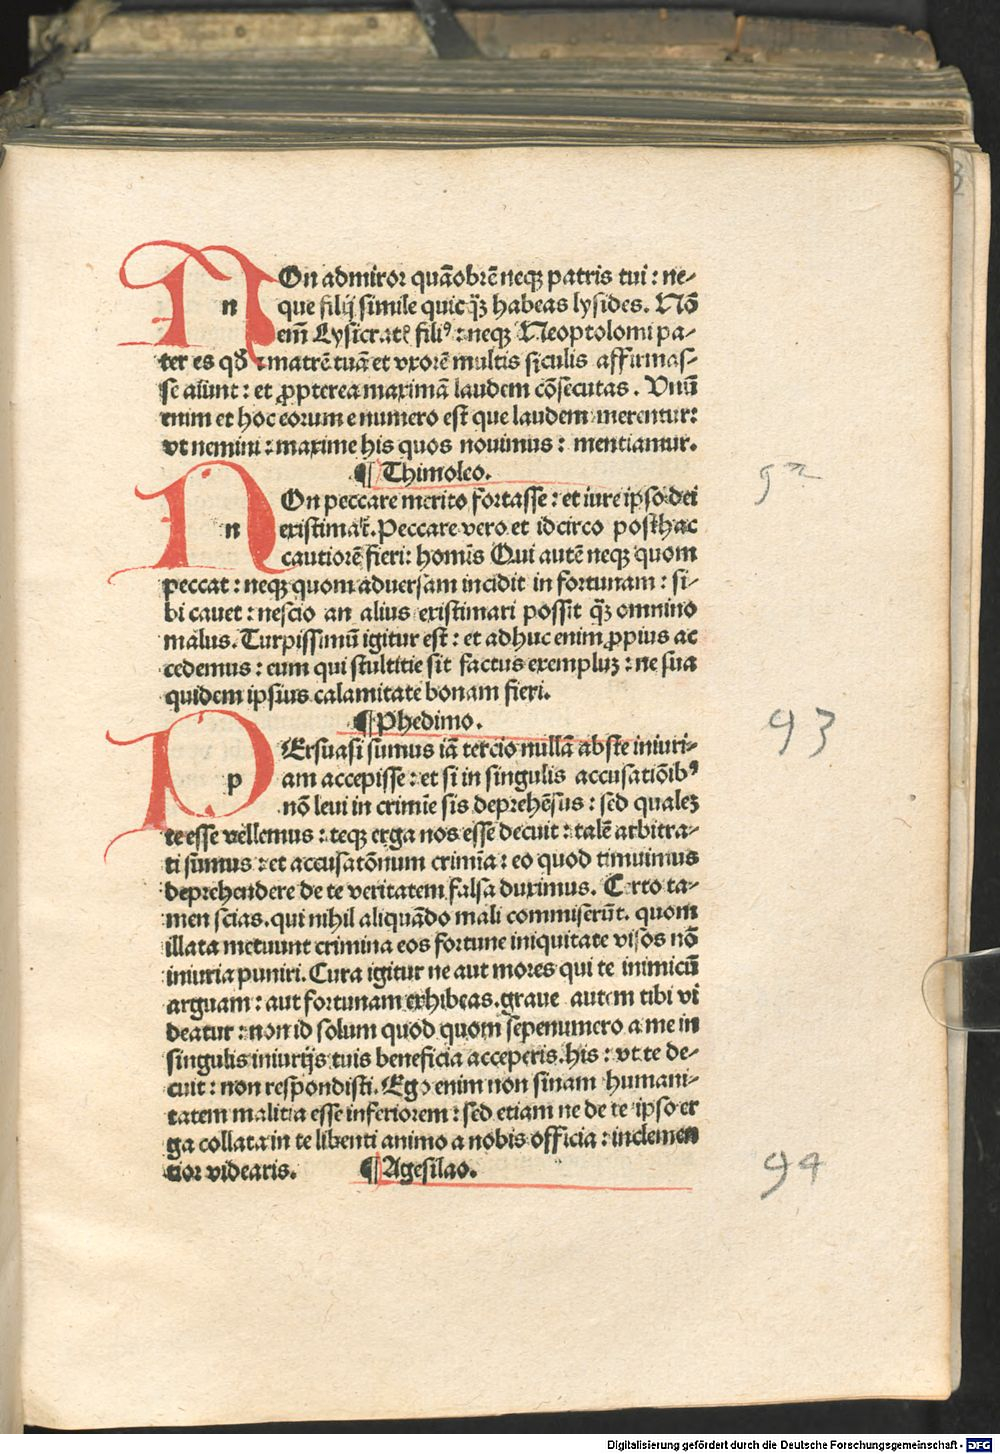 NOn admiror quãobrẽ neqȝ patris tui : ne-
n que filij simile quicq̃ȝ habeas lysides. Nõ
em̃ Lysicrati fili⁹ : neqȝ Neoptolomi pa-
ter es qđ : matrẽ tuã et vxorẽ multis siculis affirmas-
se aiunt : et ꝓpterea maximã laudem cõsecutas . Vnũ
enim et hoc eorum e numero est que laudem merentur:
vt nemini : maxime his quos novimus : mentiamur.
¶ Thimoleo.
92
NOn peccare merito fortasse : et iure ipso dei
n existimat̃. Peccare vero et idcirco posthac
cautiorẽ fieri: homis Qui autẽ neqȝ quom
peccat : neqȝ quom adversam incidit in fortunam : si-
bi cavet : nescio an alius existimari possit q̃ȝ omnino
malus. Turpissimũ igitur est : et adhuc enim ꝓpius ac
cedemus : eum qui stultitie sit factus exempluȝ : ne sua
quidem ipsius calamitate bonam fieri.
¶ Phedimo.
93
PErsuasi sumus iã tercio nullã abste iniuri-
p am accepisse : et si in singulis accusatiõib⁹
nõ levi in crimĩe sis deprehẽsus : sed qualeȝ
te esse vellemus : teqȝ erga nos esse decuit : talẽ arbitra-
ti sumus : et accusatõnum crimĩa : eo quod timuimus
deprehendere de te veritatem falsa duximus. Certo ta-
men scias. qui nihil aliquãdo mali commiserũt. quom
illata metuunt crimina eos fortune iniquitate visos nõ
iniuria puniri. Cura igitur ne aut mores qui te inimicũ
arguam : aut fortunam exhibeas. grave autem tibi vi
deatur : non id solum quod quom sepenumero a me in
singulis iniurijs tuis beneficia acceperis. his : vt te de-
cuit : non respondisti. Ego enim non sinam humani-
tatem malitia esse inferiorem : sed etiam ne de te ipso er
ga collata in te libenti animo a nobis officia : inclemen
tior videaris. ¶ Agesilao.
94
Digitalisierung gefördert durch die Deutsche Forschungsgemeinschaft - DFG